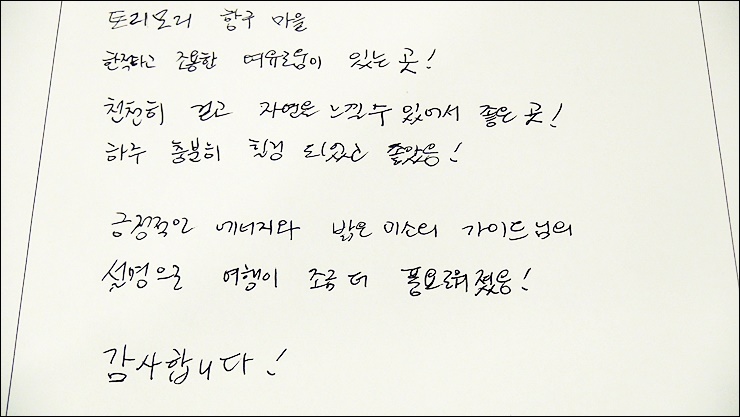 토리모리 항구 마을
한적하고 조용한 여유로움이 있는 곳!
천천히 걷고 자연을 느낄 수 있어서 좋은 곳!
하루 충분히 힐링 되었고 좋았음!
긍정적인 에너지와 밝은 미소의 가이드님의
설명으로 여행이 조금 더 풍요로워졌음!
감사합니다!